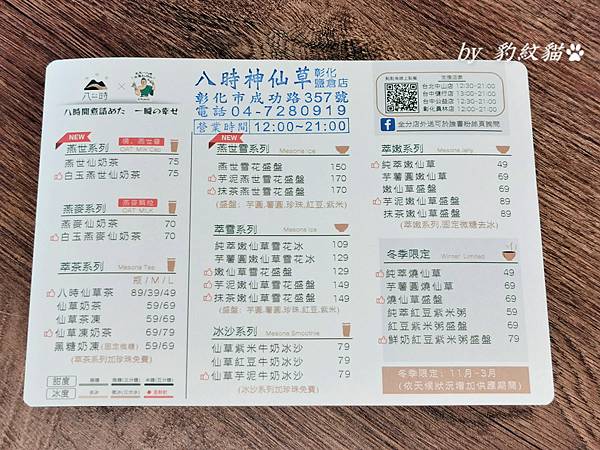 by 豹紋貓
八時神仙草 彰化鹽倉店
彰化市成功路357號
電話 04-7280919
營業時間 12:00~21:00
八時
八時間煮詰めた 一瞬の幸せ
台北中山店 12:30-21:00
台中健行店 13:00-21:00
台中公益店 12:30-21:00
彰化員林店 13:00-21:00
全分店外送可於臉書粉絲頁詢問
NEW
燕世系列
OAT Milk Cap
燕世仙奶茶 75
白玉燕世仙奶茶 75
燕麥系列
OAT MILK
燕麥仙奶茶 70
白玉燕麥仙奶茶 70
萃茶系列 Mesona Tea
瓶/M/L
八時仙草茶 89/39/49
仙草奶茶 59/69
仙草茶凍 59/69
仙草凍奶茶 69/79
黑糖奶凍(固定微糖) 59/69
(萃茶系列加珍珠免費)
甜度
冰度
NEW
燕世雪系列 Mesona Ice
燕世雪花盛盤 150
芋泥燕世雪花盛盤 170
抹茶燕世雪花盛盤 170
(盛盤: 芋圓,薯圓,珍珠,紅豆,紫米)
萃雪系列 Mesona Ice
純萃嫩仙草雪花冰 109
芋薯圓嫩仙草雪花冰 129
嫩仙草雪花盛盤 129
芋泥嫩仙草雪花盛盤 149
抹茶嫩仙草雪花盛盤 149
(盛盤: 芋圓,薯圓,珍珠,紅豆,紫米)
冰沙系列 Mesona Smoothie
仙草紫米牛奶冰沙 79
仙草紅豆牛奶冰沙 79
仙草芋泥牛奶冰沙 79
(冰沙系列加珍珠免費)
萃嫩系列 Mesona Jelly
純萃嫩仙草 49
芋薯圓嫩仙草 69
嫩仙草盛盤 69
芋泥嫩仙草盛盤 89
抹茶嫩仙草盛盤 89
(萃嫩系列,固定微糖去冰)
冬季限定 Winter Limited
純萃燒仙草 49
芋薯圓燒仙草 69
燒仙草盛盤 69
純萃紅豆紫米粥 59
紅豆紫米粥盛盤 69
鮮奶紅豆紫米粥盛盤 79
冬季限定: 11月-3月
(依天候狀況增加供應期間)